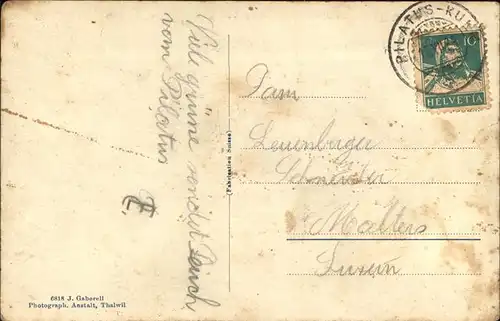 Viele grüsse sendet Euch
vom Pilatus
E.
(Fabrication Suisse)
6818 J. Gaberell
Photograph. Anstalt, Thalwil
PILATUS-KU
10
HELVETIA
Fam
Leuenberger
Schneider
Malters
Luzern